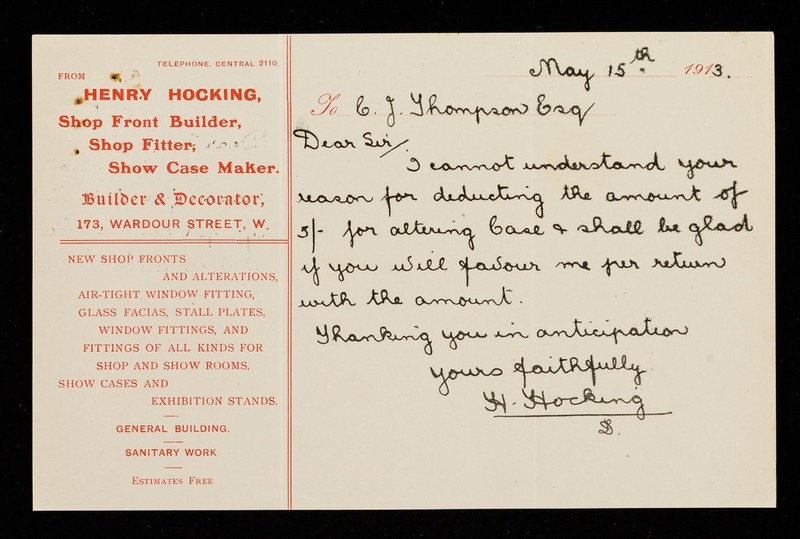 TELEPHONE, CENTRAL 2110.
FROM
HENRY HOCKING,
Shop Front Builder,
Shop Fitter,
Show Case Maker.
Builder & Decorator,
173, WARDOUR STREET, W.
NEW SHOP FRONTS
AND ALTERATIONS,
AIR-TIGHT WINDOW FITTING,
GLASS FACIAS, STALL PLATES,
WINDOW FITTINGS, AND
FITTINGS OF ALL KINDS FOR
SHOP AND SHOW ROOMS,
SHOW CASES AND
EXHIBITION STANDS.
GENERAL BUILDING.
SANITARY WORK
ESTIMATES FREE
May 15th 1913.
To C. J. Thompson Esq
Dear Sir,
I cannot understand your
reason for deducting the amount of
5/- for altering Case & shall be glad
if you will favour me per return
with the amount.
Thanking you in anticipation
yours faithfully
H. Hocking
S.